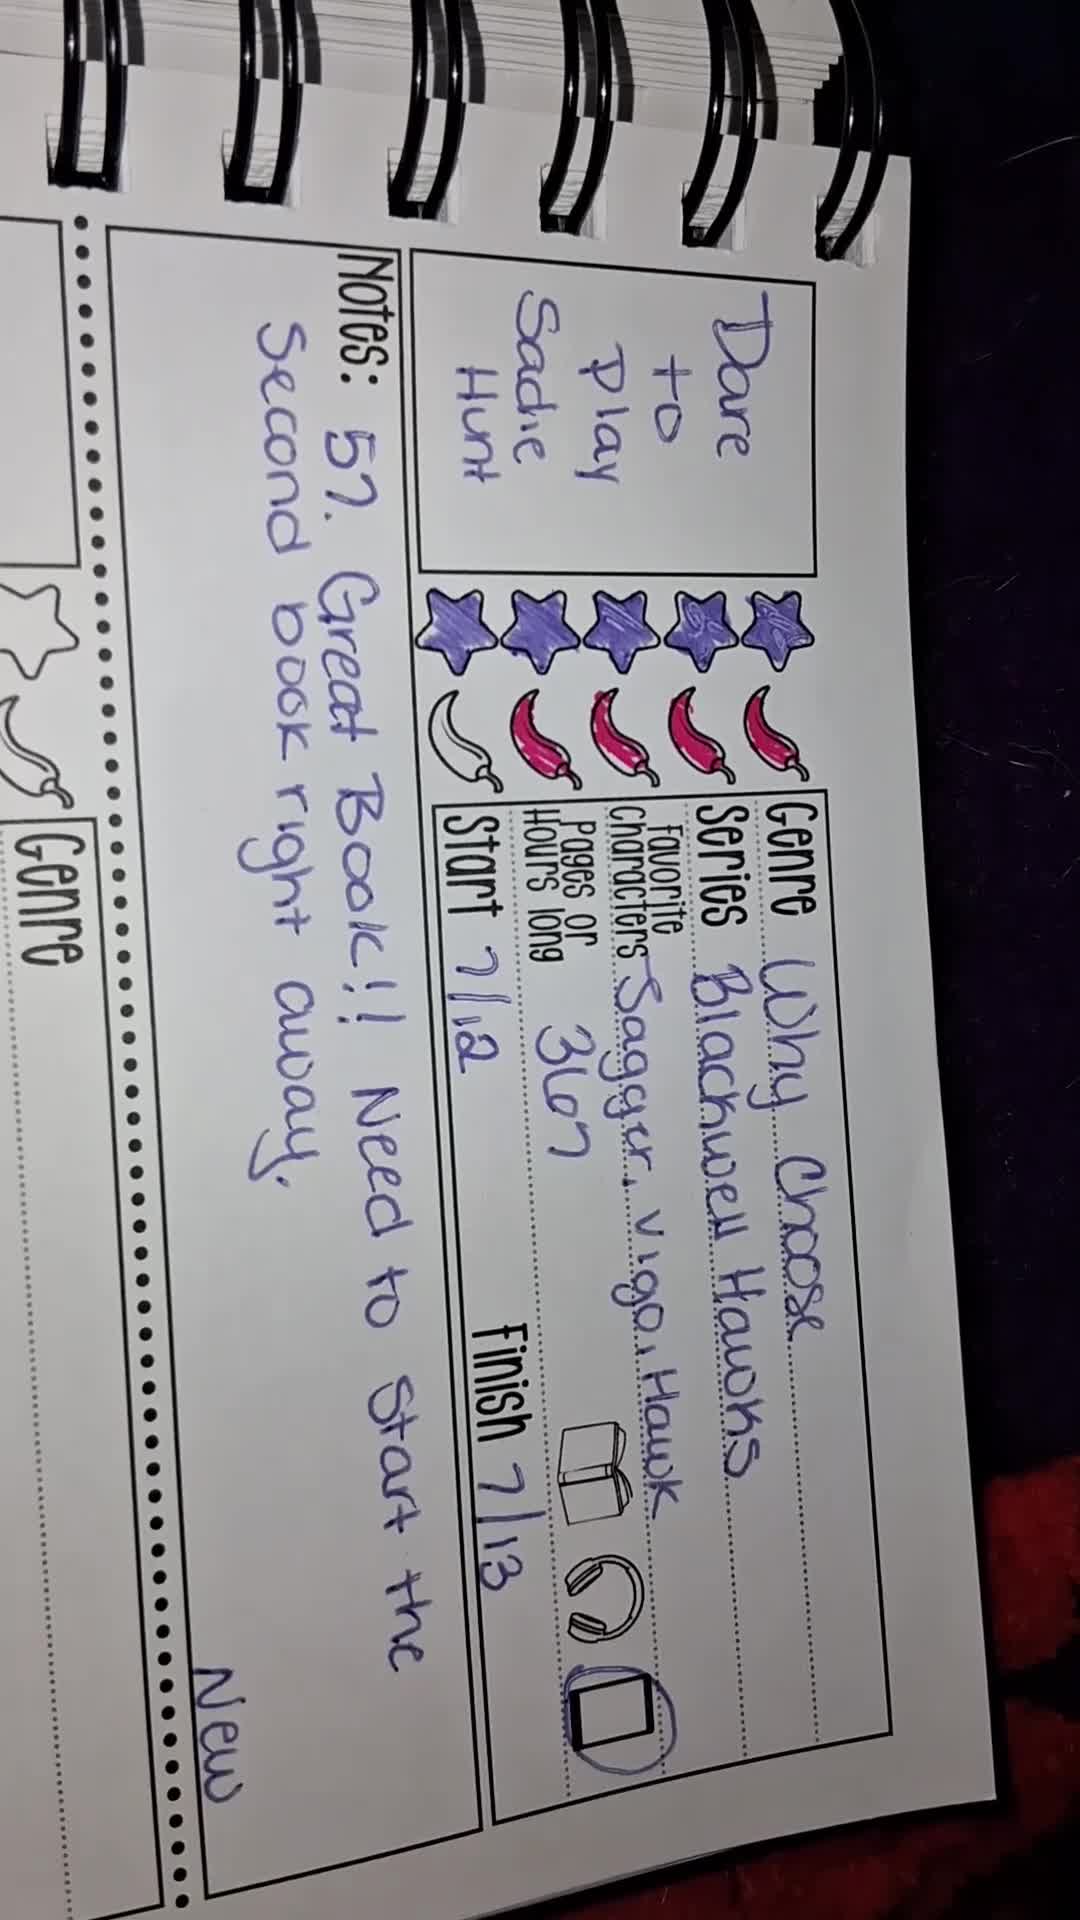 Dare
to
Play
Sadie
Hunt
Genre Why Choose
Series Blackwell Hawks
Favorite
Characters Sagger, Vigo, Hawk
Pages or
Hours long 367
Start 7/12 Finish 7/13
Notes: 57. Great Book!! Need to start the
second book right away.
New
Genre